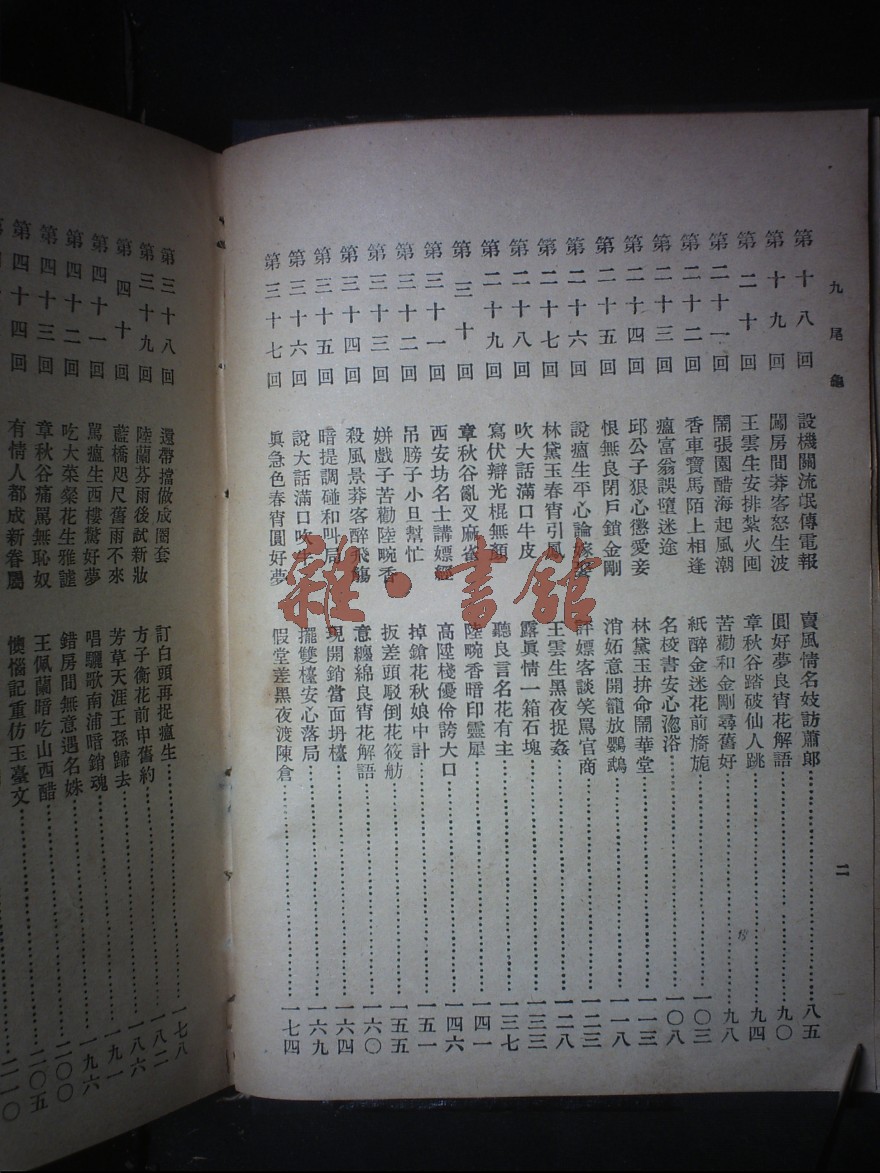 九尾龜
二
第十八回 設機關流氓傳電報 賣風情名妓訪蕭郎 八五
第十九回 闖房間莽客怒生波 圓好夢良宵花解語 九〇
第二十回 王雲生安排紮火囤 章秋谷踏破仙人跳 九四
第二十一回 鬧張園醋海起風潮 苦勸和金剛尋舊好 九八
第二十二回 香車寶馬陌上相逢 紙醉金迷花前旖旎 一〇三
第二十三回 瘟富翁誤墮迷途 名校書安心淴浴 一〇八
第二十四回 邱公子狠心懲愛妾 林黛玉拚命鬧華堂 一一三
第二十五回 恨無良閉戶鎖金剛 消妬意開籠放鸚鵡 一一八
第二十六回 說瘟生平心論嫁娶 評嫖客談笑罵官商 一二三
第二十七回 林黛玉春宵引鳳 王雲生黑夜捉姦 一二八
第二十八回 吹大話滿口牛皮 露眞情一箱石塊 一三三
第二十九回 寫伏辯光棍無顏 聽良言名花有主 一三七
第三十回 章秋谷亂叉麻雀 陸畹香暗印靈犀 一四一
第三十一回 西安坊名士講嫖經 高陞棧優伶誇大口 一四六
第三十二回 吊膀子小旦幫忙 掉鎗花秋娘中計 一五一
第三十三回 姘戲子苦勸陸畹香 扳差頭駁倒花筱舫 一五五
第三十四回 殺風景莽客醉飛觴 意纏綿良宵花解語 一六〇
第三十五回 暗提調碰和叫局 現開銷當面坍檯 一六四
第三十六回 說大話滿口吹牛 擺雙檯安心落局 一六九
第三十七回 眞急色春宵圓好夢 假堂差黑夜渡陳倉 一七四
第三十八回 還帶擋做成圈套 訂白頭再捉瘟生 一七八
第三十九回 陸蘭芬雨後試新妝 方子衡花前申舊約 一八二
第四十回 藍橋咫尺舊雨不來 芳草天涯王孫歸去 一八六
第四十一回 罵瘟生西樓驚好夢 唱驪歌南浦暗銷魂 一九一
第四十二回 吃大菜粲花生雅謔 錯房間無意遇名姝 一九六
第四十三回 章秋谷痛罵無恥奴 王佩蘭暗吃山西醋 二〇〇
第四十四回 有情人都成新眷屬 懊惱記重仿玉臺文 二〇五
二一〇
雜·書館